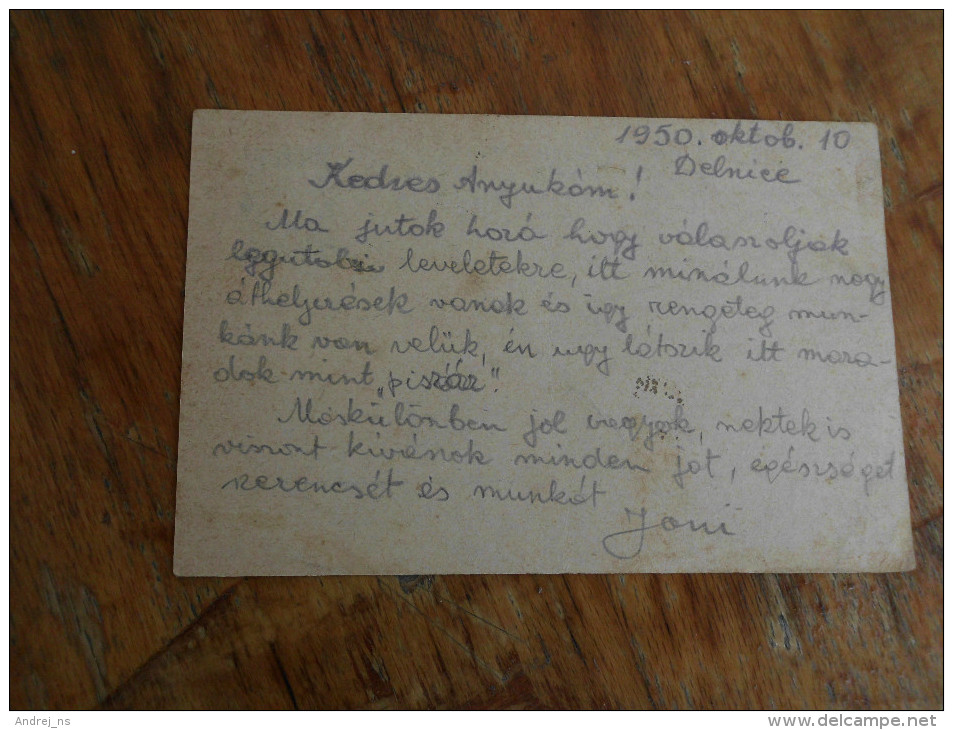 1950. oktob. 10
Delnice
Kedves Anyukám!
Ma jutok hozá hogy válaszoljak
legutobi leveletekre, itt minálunk nagy
áthelyezések vanak és így rengeteg mun-
kánk van velük, én ugy látszik itt mara-
dok mint „piszár".
Máskülönben jol vagyok, nektek is
viszont kivánok minden jot, egészséget
szerencsét és munkát
Joni
Andrej_ns
delcampe.net